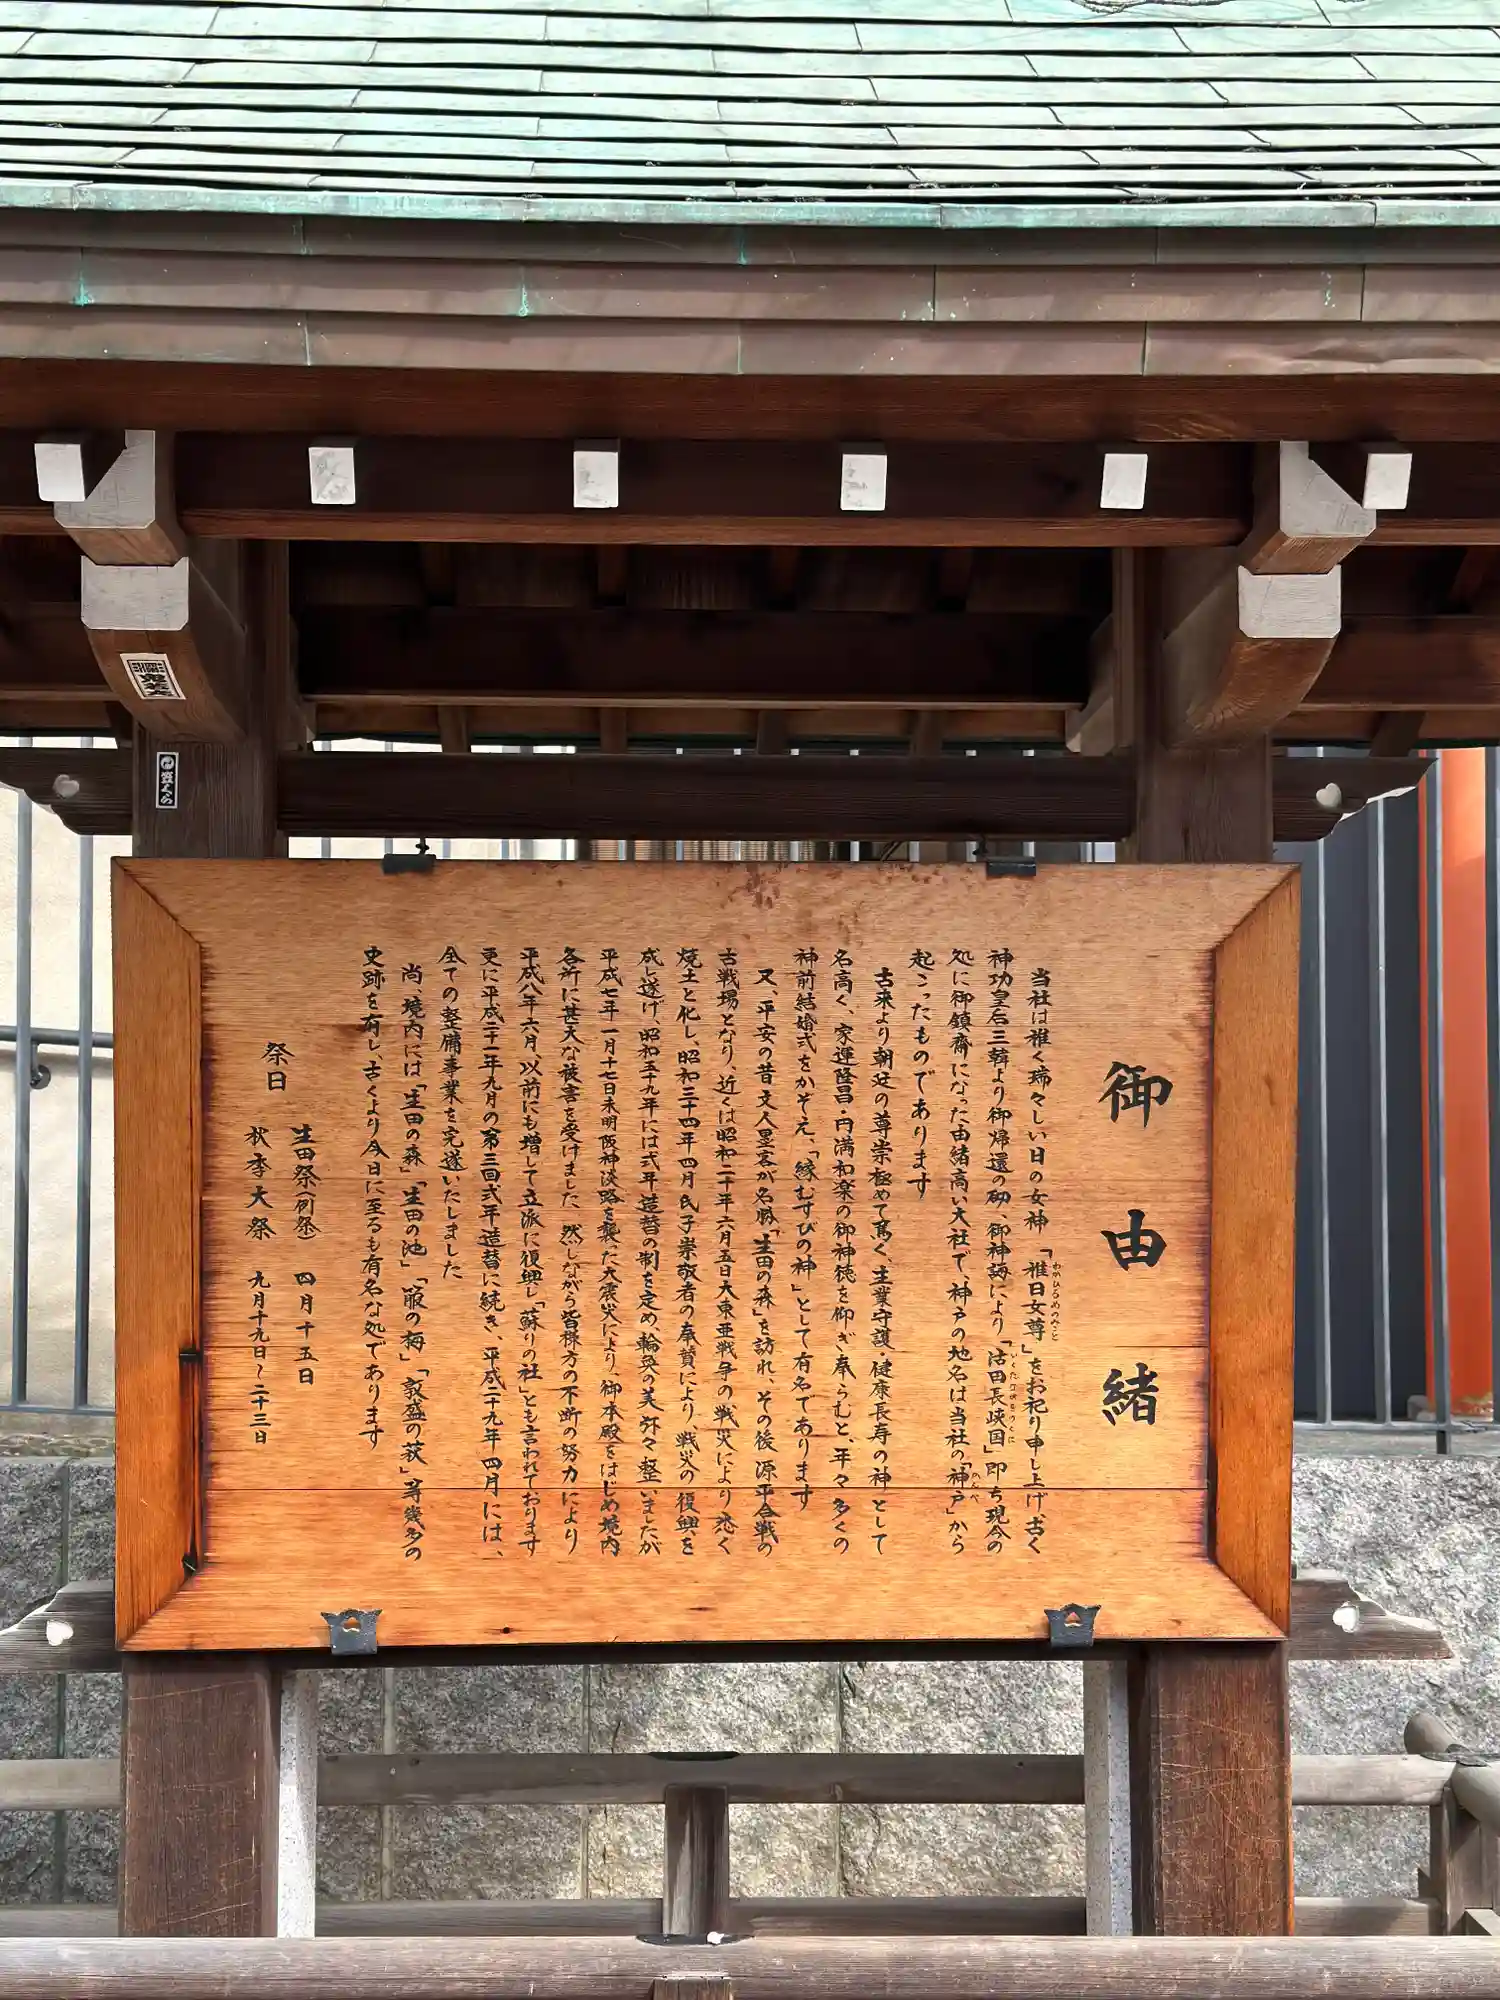 御由緒
当社は稚く瑞々しい日の女神 「稚日女尊」をお祀り申し上げ、古く
わかひるめのみこと
神功皇后三韓より御帰還の砌、御神誨により「活田長峡国」即ち現今の
いくたながをのくに
処に御鎮斎になった由緒高い大社で、神戸の地名は当社の「神戸」から
かんべ
起こったものであります
古来より朝廷の尊崇極めて篤く、主業守護・健康長寿の神として
名高く、家運隆昌・円満和楽の御神徳を仰ぎ奉らむと、年々多くの
神前結婚式をかぞえ、「縁むすびの神」として有名であります
又、平安の昔文人墨客が名勝「生田の森」を訪れ、その後源平合戦の
古戦場となり、近くは昭和二十年六月五日大東亜戦争の戦災により悉く
焼土と化し、昭和三十四年四月氏子崇敬者の奉賛により、戦災の復興を
成し遂げ、昭和五十九年には式年造替の制を定め、輪奐の美弥々整いましたが
平成七年一月十七日未明阪神淡路を襲った大震災により、御本殿をはじめ境内
各所に甚大な被害を受けました 然しながら皆様方の不断の努力により
平成八年六月、以前にも増して立派に復興し「蘇りの社」とも言われております
更に平成二十一年九月の第三回式年造替に続き、平成二十九年四月には、
全ての整備事業を完遂いたしました
尚、境内には「生田の森」「生田の池」「箙の梅」「敦盛の萩」等幾多の
史跡を有し、古くより今日に至るも有名な処であります
祭日
生田祭(例祭) 四月十五日
秋季大祭 九月十九日～二十三日